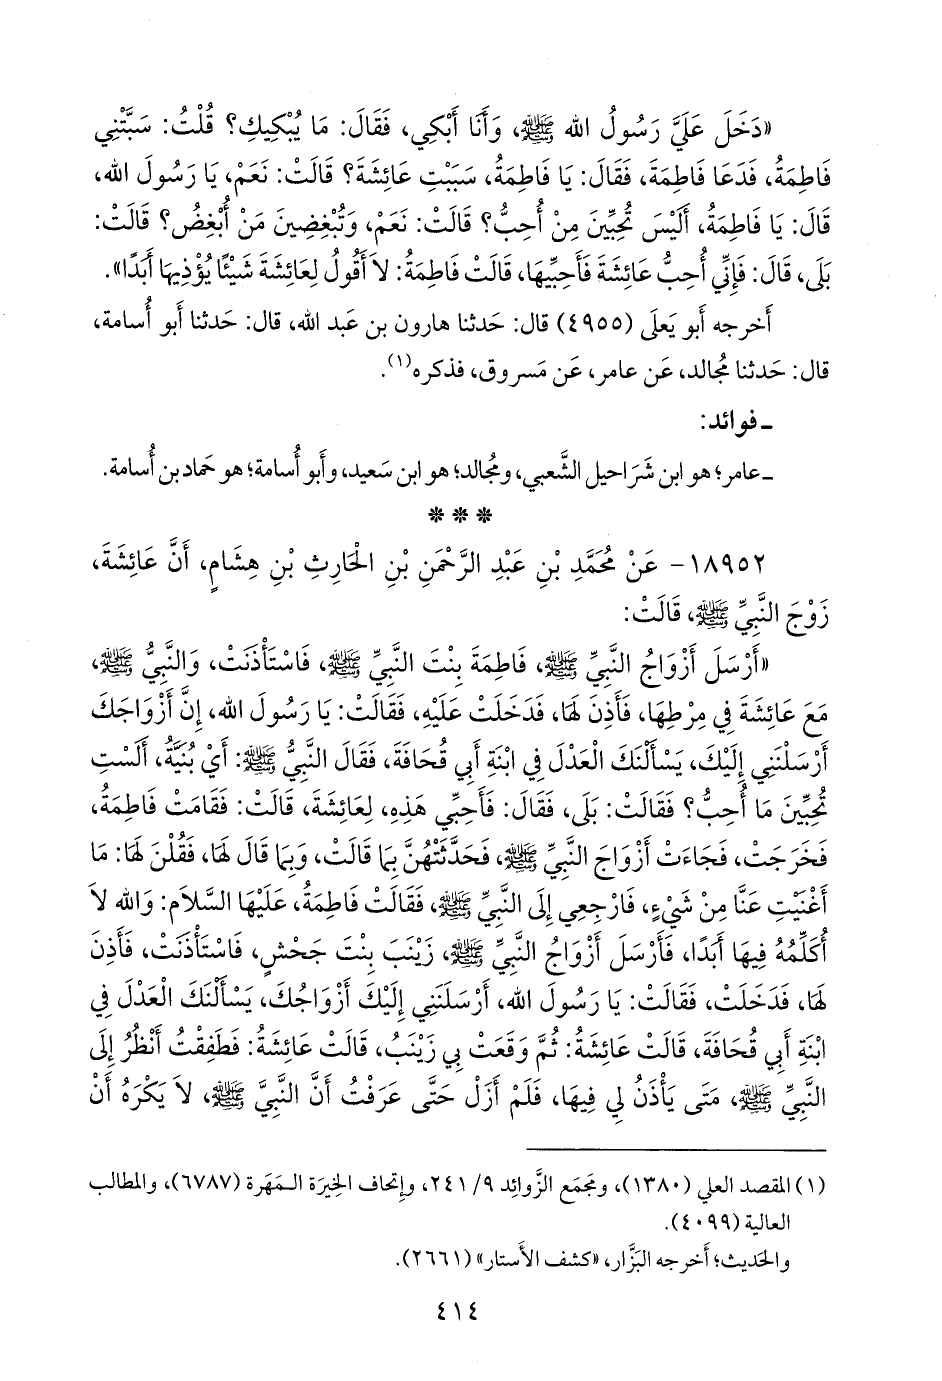 «دَخَلَ عَلَيَّ رَسُولُ الله ﷺ، وَأَنَا أَبْكِي، فَقَالَ: مَا يُبْكِيكِ؟ قُلْتُ: سَبَّتْنِي
فَاطِمَةُ، فَدَعَا فَاطِمَةَ، فَقَالَ: يَا فَاطِمَةُ، سَبَبْتِ عَائِشَةَ؟ قَالَتْ: نَعَمْ، يَا رَسُولَ الله،
قَالَ: يَا فَاطِمَةُ، أَلَيْسَ تُحِبِّينَ مِنْ أُحِبُّ؟ قَالَتْ: نَعَمْ، وَتُبْغِضِينَ مَنْ أُبْغِضُ؟ قَالَتْ:
بَلَى، قَالَ: فَإِنِّي أُحِبُّ عَائِشَةَ فَأَحِبِّيهَا، قَالَتْ فَاطِمَةُ: لاَ أَقُولُ لِعَائِشَةَ شَيْئًا يُؤْذِيهَا أَبَدًا».
أَخرجه أَبو يَعلَى (٤٩٥٥) قال: حَدثنا هارون بن عَبد الله، قال: حَدثنا أَبو أُسامة،
قال: حَدثنا مُجالد، عَن عامر، عَن مَسروق، فذكره(١).
ـ فوائد:
ـ عامر؛ هو ابن شَرَاحيل الشَّعبي، ومُجالد؛ هو ابن سَعيد، وأَبو أُسامة؛ هو حَماد بن أُسامة.
* * *
١٨٩٥٢- عَنْ مُحَمَّدِ بْنِ عَبْدِ الرَّحْمَنِ بْنِ الْحَارِثِ بْنِ هِشَامٍ، أَنَّ عَائِشَةَ،
زَوْجَ النَّبِيِّ ﷺ، قَالَتْ:
«أَرْسَلَ أَزْوَاجُ النَّبِيِّ ﷺ، فَاطِمَةَ بِنْتَ النَّبِيِّ ﷺ، فَاسْتَأْذَنَتْ، وَالنَّبِيُّ ﷺ،
مَعَ عَائِشَةَ فِي مِرْطِهَا، فَأَذِنَ لَهَا، فَدَخَلَتْ عَلَيْهِ، فَقَالَتْ: يَا رَسُولَ الله، إِنَّ أَزْوَاجَكَ
أَرْسَلْنَنِي إِلَيْكَ، يَسْأَلْنَكَ الْعَدْلَ فِي ابْنَةِ أَبِي قُحَافَةَ، فَقَالَ النَّبِيُّ ﷺ: أَيْ بُنَيَّةُ، أَلَسْتِ
تُحِبِّينَ مَا أُحِبُّ؟ فَقَالَتْ: بَلَى، فَقَالَ: فَأَحِبِّي هَذِهِ، لِعَائِشَةَ، قَالَتْ: فَقَامَتْ فَاطِمَةُ،
فَخَرَجَتْ، فَجَاءَتْ أَزْوَاجَ النَّبِيِّ ﷺ، فَحَدَّثَتْهُنَّ بِمَا قَالَتْ، وَبِمَا قَالَ لَهَا، فَقُلْنَ لَهَا: مَا
أَغْنَيْتِ عَنَّا مِنْ شَيْءٍ، فَارْجِعِي إِلَى النَّبِيِّ ﷺ، فَقَالَتْ فَاطِمَةُ، عَلَيْهَا السَّلاَم: وَالله لاَ
أُكَلِّمُهُ فِيهَا أَبَدًا، فَأَرْسَلَ أَزْوَاجُ النَّبِيِّ ﷺ، زَيْنَبَ بِنْتَ جَحْشٍ، فَاسْتَأْذَنَتْ، فَأَذِنَ
لَهَا، فَدَخَلَتْ، فَقَالَتْ: يَا رَسُولَ الله، أَرْسَلَنَنِي إِلَيْكَ أَزْوَاجُكَ، يَسْأَلْنَكَ الْعَدْلَ فِي
ابْنَةِ أَبِي قُحَافَةَ، قَالَتْ عَائِشَةُ: ثُمَّ وَقَعَتْ بِي زَيْنَبُ، قَالَتْ عَائِشَةُ: فَطَفِقْتُ أَنْظُرُ إِلَى
النَّبِيِّ ﷺ، مَتَى يَأْذَنُ لِي فِيهَا، فَلَمْ أَزَلْ حَتَّى عَرَفْتُ أَنَّ النَّبِيَّ ﷺ، لاَ يَكْرَهُ أَنْ
(١) المقصد العلي (١٣٨٠)، ومَجمَع الزَّوائِد ٩/ ٢٤١، وإتحاف الخِيرَة الـمَهَرة (٦٧٨٧)، والمطالب
العالية (٤٠٩٩).
والحَديث؛ أَخرجه البَزَّار، «كشف الأَستار» (٢٦٦١).
٤١٤